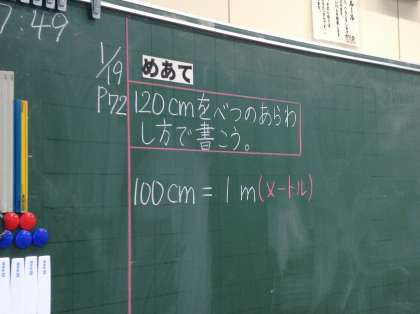 7:49
1/19
P72
めあて
120cmをべつのあらわ
し方で書こう。
100cm = 1m(メートル)